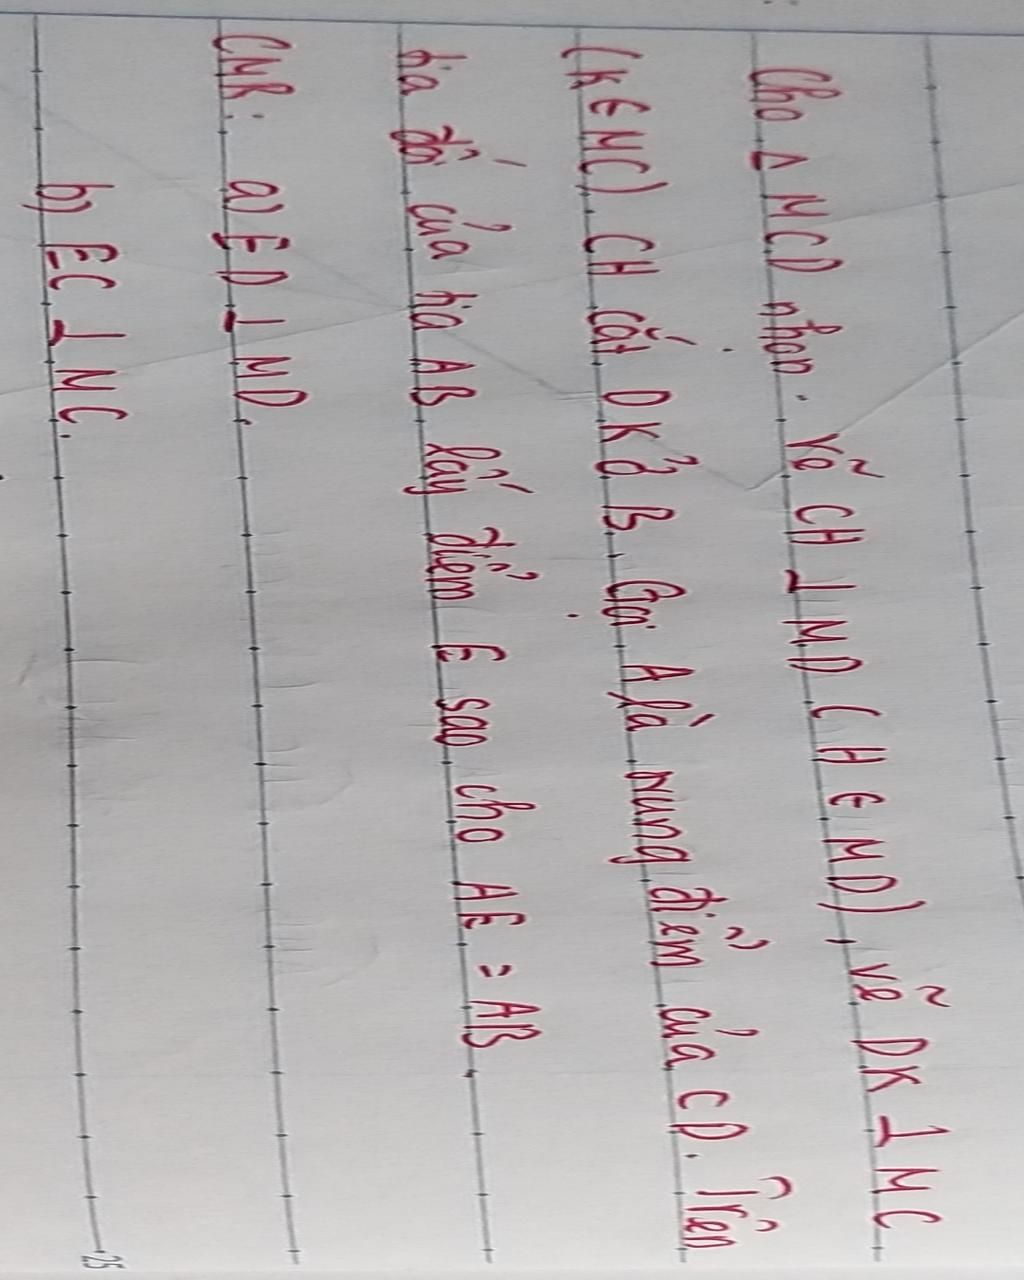 Cho Δ MCD nhọn. Vẽ CH ⊥ MD (H ∈ MD), vẽ DK ⊥ MC
(K ∈ MC). CH cắt DK ở B. Gọi A là trung điểm của CD. Trên
tia đối của tia AB lấy điểm E sao cho AE = AB.
CMR: a) ED ⊥ MD.
b) EC ⊥ MC.
25